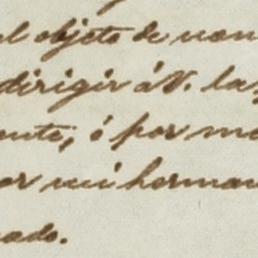 el objeto de
dirigir á V. las
ente, ó por me
or mi herman
ado.